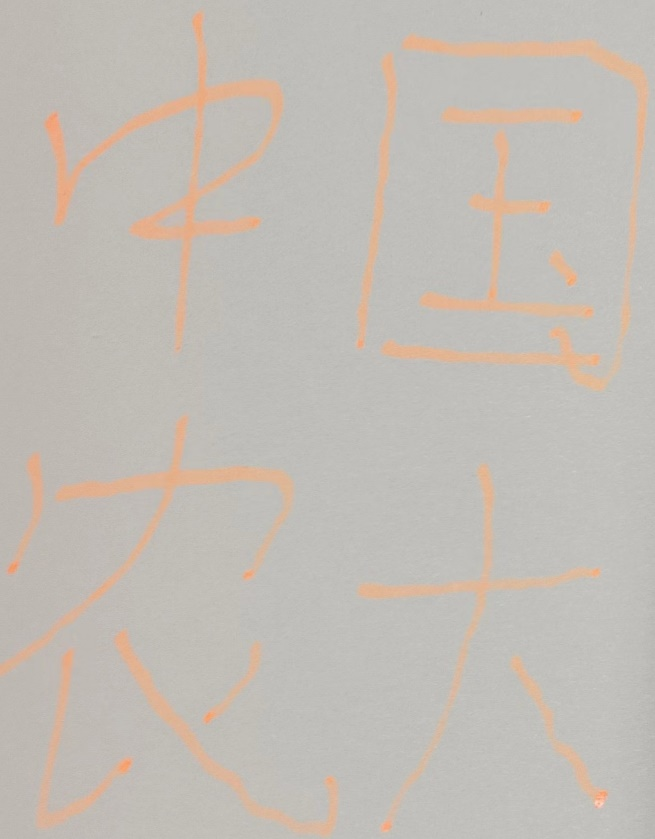 中国
农大